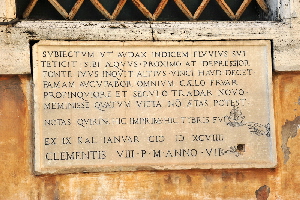 SVBIECTVM VIX AVDAX INDICEM FLVVIVS SVI
TETIGIT SIBI AEQVVS PROXIMO AT DEPRESSIOR
FONTE HVIVS INQVIT ALTIVS VINCI HAVD DECET
FAMAM AVCVPABOR OMNIVM CAELO FRVAR
PROPINQVIORE ET SECVLO TRADAR NOVO
MEMINISSE QVORVM VLLA NO AETAS POTEST
NOTAS QVIRITIB IMPRIMEBAT TIBRIS SVI
EX IX KAL IANVAR CIↃ IↃ XCVIII
CLEMENTIS VIII P M ANNO VII